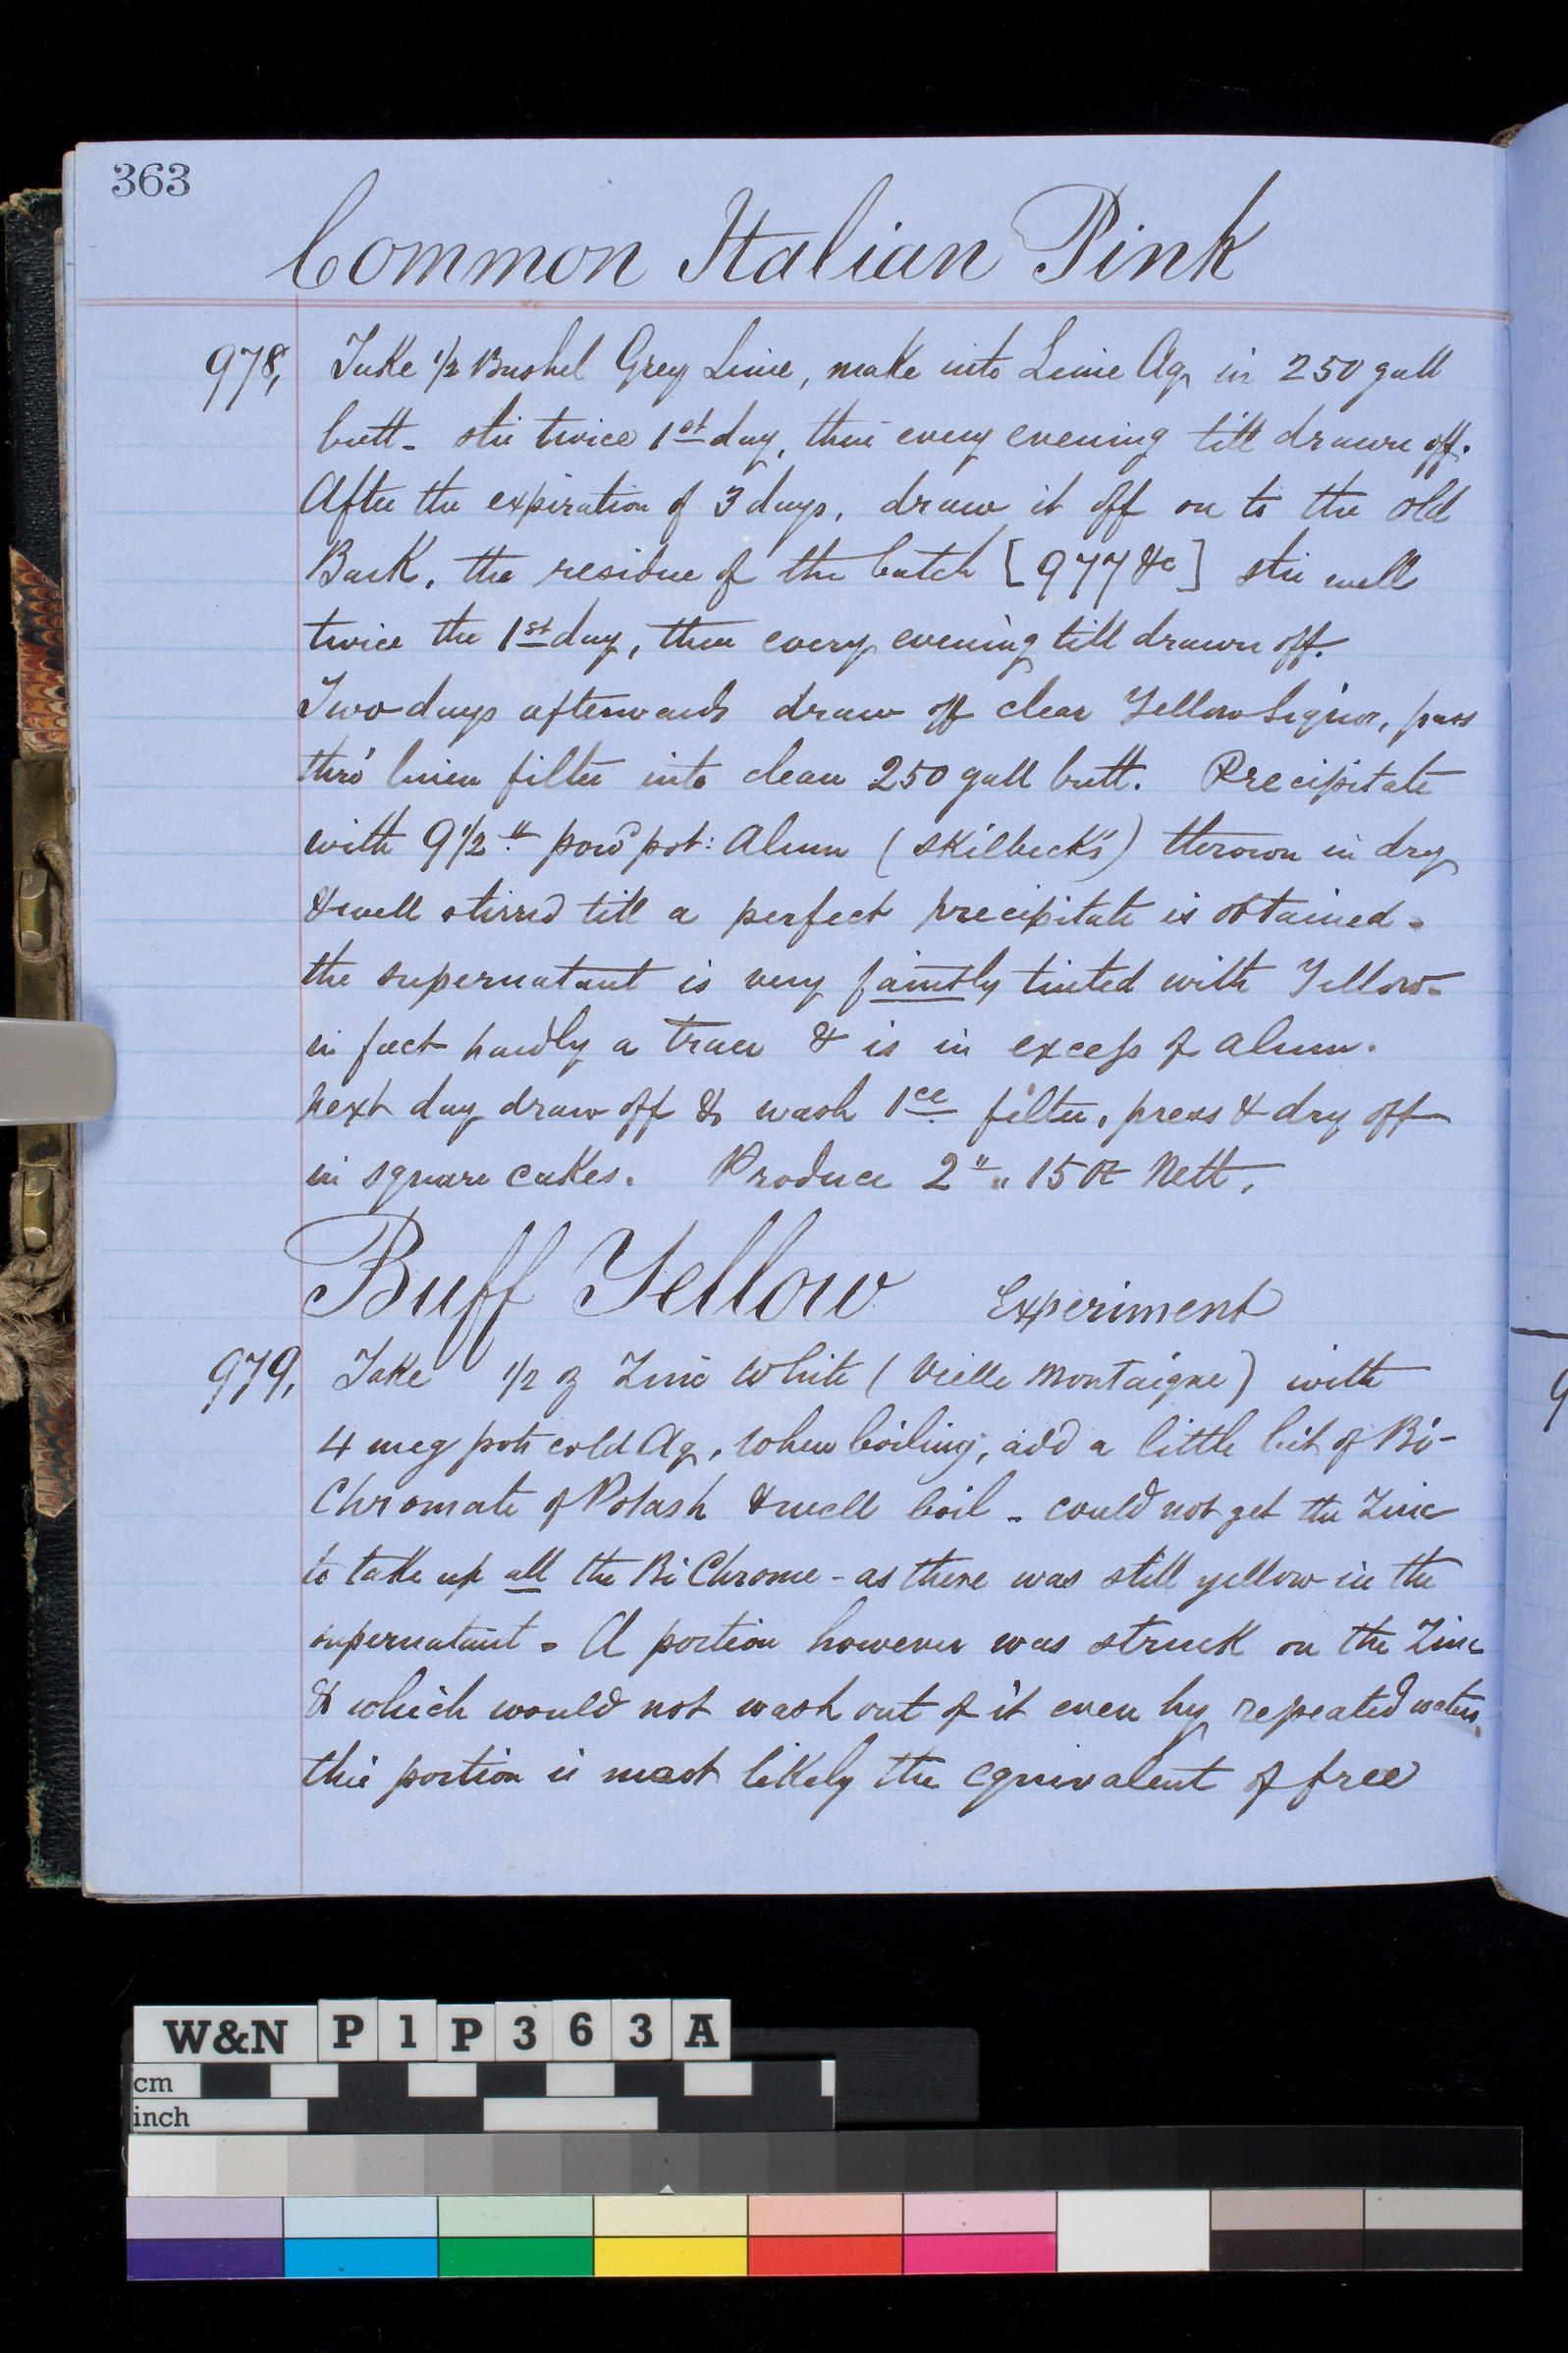 363
Common Italian Pink
978, Take 1/2 Bushel Grey Lime, make into Lime Aq, in 250 gall
butt - stir twice 1st day, then every evening till drawn off.
After the expiration of 3 days, draw it off on to the old
Bark, the residue of the batch [977 &c] stir well
twice the 1st day, then every evening till drawn off.
Two days afterwards draw off clear Yellow Liquor, pass
thro' linen filter into clean 250 gall butt. Precipitate
with 9 1/2 " powd pot: Alum (Skilbeck's) thrown in dry
& well stirred till a perfect precipitate is obtained -
the supernatant is very faintly tinted with Yellow -
in fact hardly a trace & is in excess of alum.
Next day draw off & wash 1ce filter, press & dry off
in square cakes. Produce 2 " 15 oz Nett,
Buff Yellow Experiment
979, Take 1/2 oz Zinc White (Vielle Montaigne) with
4 meg pots cold Aq, when boiling, add a little bit of Bi-
Chromate of Potash & well boil - could not get the Zinc
to take up all the BiChrome - as there was still yellow in the
supernatant - A portion however was struck on the Zinc
& which would not wash out of it even by repeated waters,
this portion is most likely the equivalent of free
W&N P1P363A
cm
inch